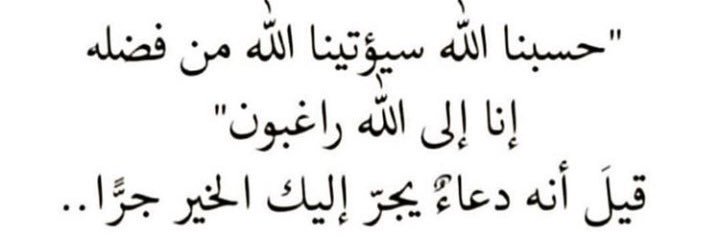 "حسبنا الله سيؤتينا الله من فضله
إنا إلى الله راغبون"
قيلَ أنه دعاءٌ يجرّ إليك الخير جرًّا..